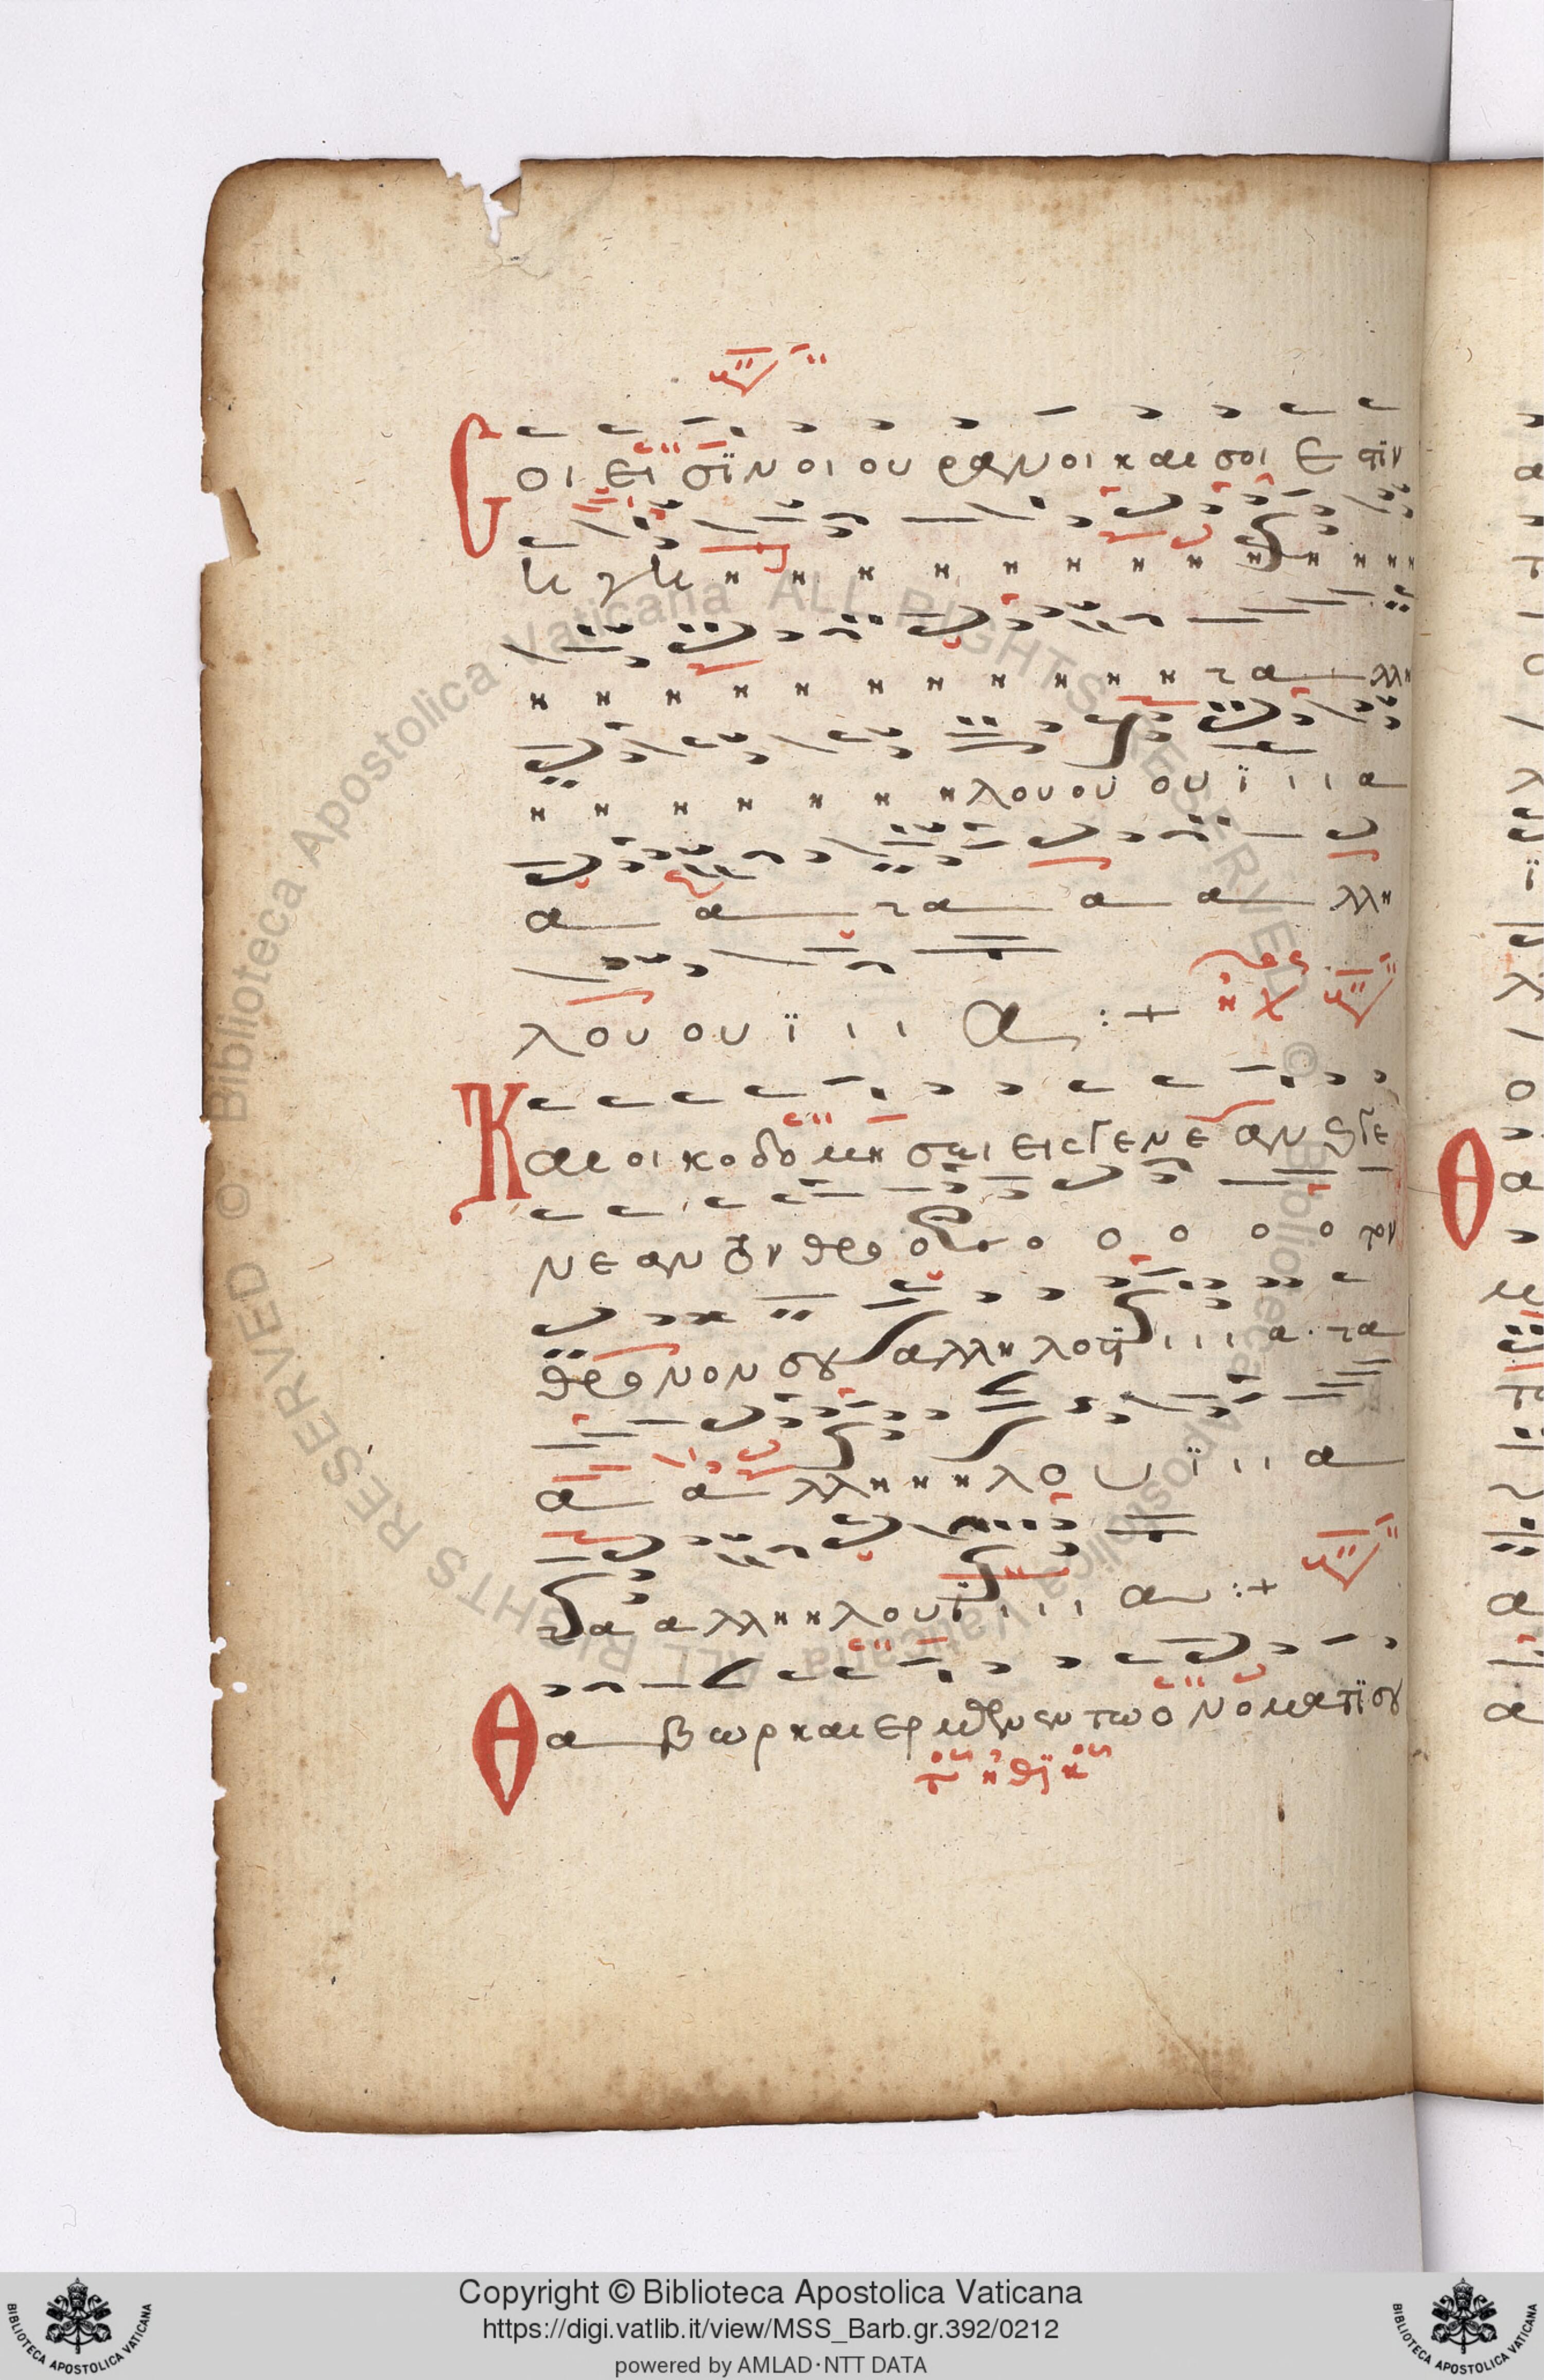 Σοι ει σϊν οι ου ρα νοι και σοι ε στϊν
η γη η η η η η η η η η η η
η η η η η η η η η η τα λλη
η η η η η η η λου ου ου ϊ ι ι α
α α τα α α λλη
λου ου ϊ ι ι α :+
Και οι κο δο μη σω εις γε νε αν και γε
νε αν τον θρο ο ο ο ο ο ο ο τον
θρο νον σου αλλη λου ϊ ι ι ι α τα
α α λλη η η λο υ ϊ ι ι α
τα α α λλη η λου ϊ ι ι ι α :+
Θα βωρ και ερ μων εν τω ο νο μα τϊ σου
Copyright © Biblioteca Apostolica Vaticana
https://digi.vatlib.it/view/MSS_Barb.gr.392/0212
powered by AMLAD·NTT DATA
BIBLIOTECA APOSTOLICA VATICANA
BIBLIOTECA APOSTOLICA VATICANA
© Biblioteca Apostolica Vaticana ALL RIGHTS RESERVED
© Biblioteca Apostolica Vaticana ALL RIGHTS RESERVED